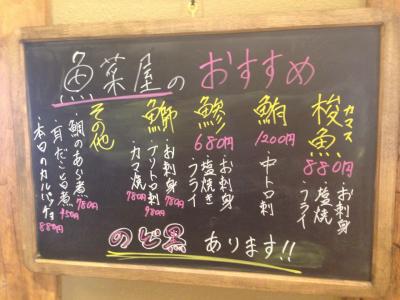 魚菜屋のおすすめ
カマス
梭魚
880円
・お刺身
・塩焼き
・フライ
鮪
1200円
・中トロ刺
鯵
680円
・お刺身
・塩焼き
・フライ
鰤
・お刺身 780円
・ブリトロ刺 980円
・カマ焼 780円
その他
・鯛のあら煮 780円
・本日のカルパッチョ 880円
のど黒 あります!!